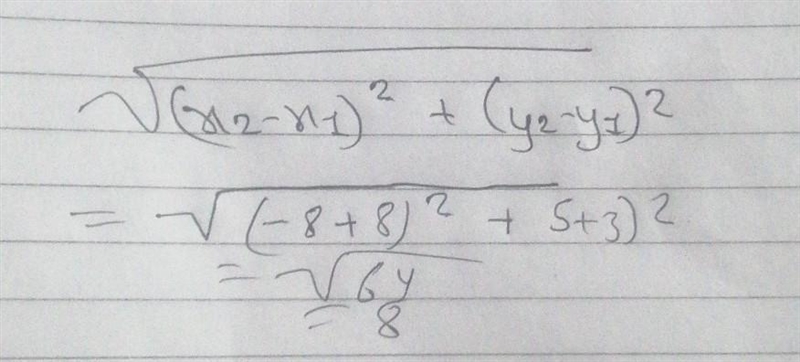 √(x₂-x₁)² + (y₂-y₁)²
= √(-8+8)² + 5+3)²
= √64
= 8